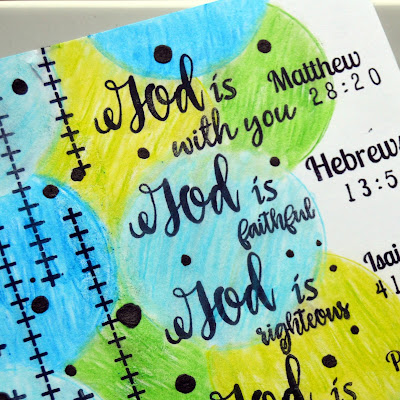 God is
with you
Matthew
28:20
God is
faithful
Hebrews
13:5
God is
righteous
Isai
41
God is
P